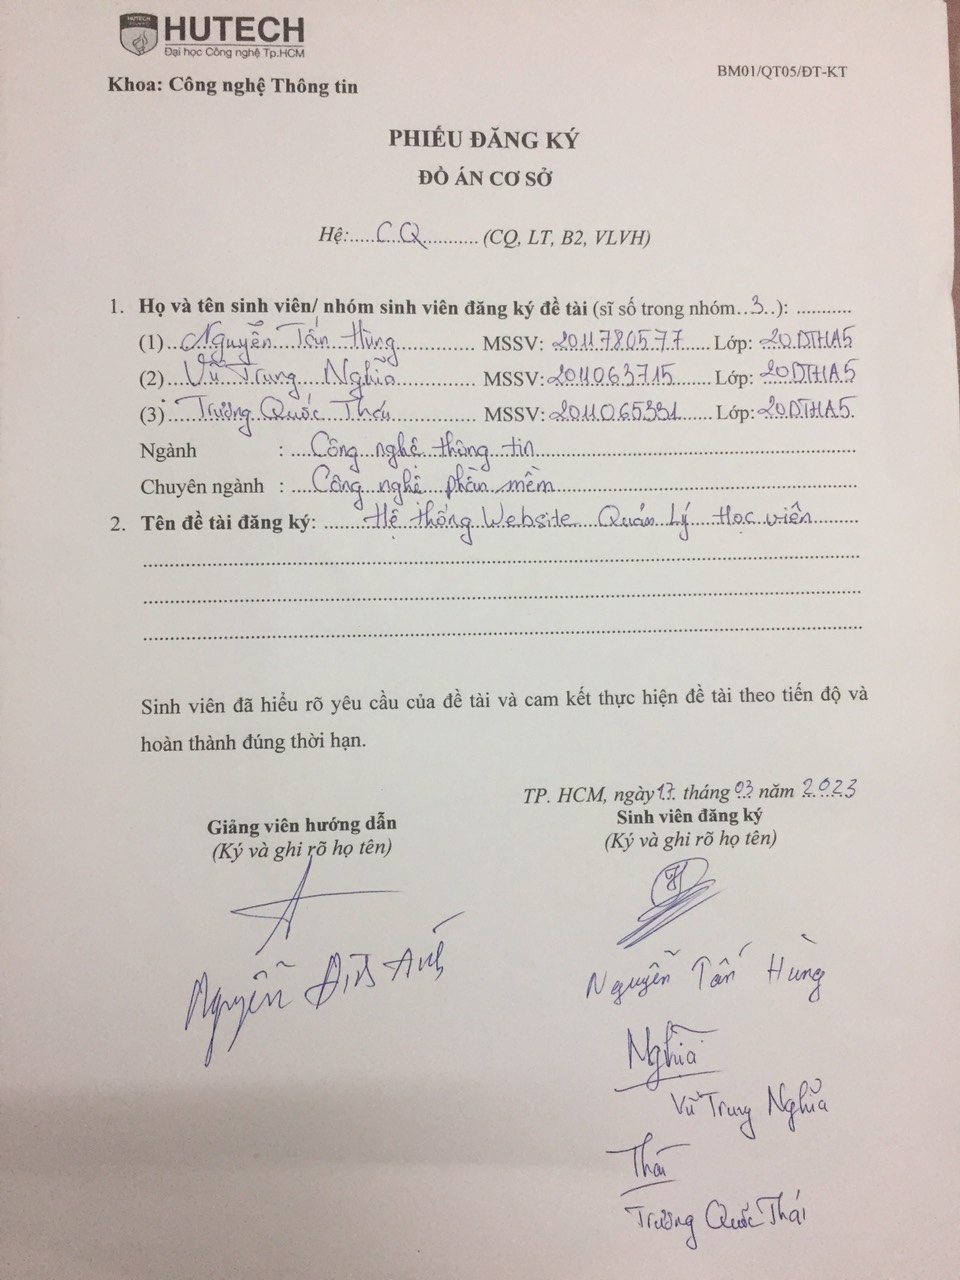 HUTECH
Đại học Công nghệ Tp.HCM
Khoa: Công nghệ Thông tin
BM01/QT05/ĐT-KT
PHIẾU ĐĂNG KÝ
ĐỒ ÁN CƠ SỞ
Hệ:.....CQ........... (CQ, LT, B2, VLVH)
1. Họ và tên sinh viên/ nhóm sinh viên đăng ký đề tài (sĩ số trong nhóm..3..): ...........
(1)..Nguyễn Tấn Hùng.............. MSSV: 2011780577..... Lớp: 20DTHA5
(2)...Vũ Trung Nghĩa.............. MSSV: 2011063715....... Lớp: 20DTHA5
(3)....Trương Quốc Thái.............. MSSV: 2011065331...... Lớp: 20DTHA5.
Ngành : ....Công nghệ thông tin..............................
Chuyên ngành : ....Công nghệ phần mềm..............................
2. Tên đề tài đăng ký: .......Hệ thống Website Quản Lý Học viên........
Sinh viên đã hiểu rõ yêu cầu của đề tài và cam kết thực hiện đề tài theo tiến độ và
hoàn thành đúng thời hạn.
TP. HCM, ngày 17 tháng 03 năm 2023
Giảng viên hướng dẫn
(Ký và ghi rõ họ tên)
Sinh viên đăng ký
(Ký và ghi rõ họ tên)
Nguyễn Đình Ánh
Nguyễn Tấn Hùng
Nghĩa
Vũ Trung Nghĩa
Thái
Trương Quốc Thái